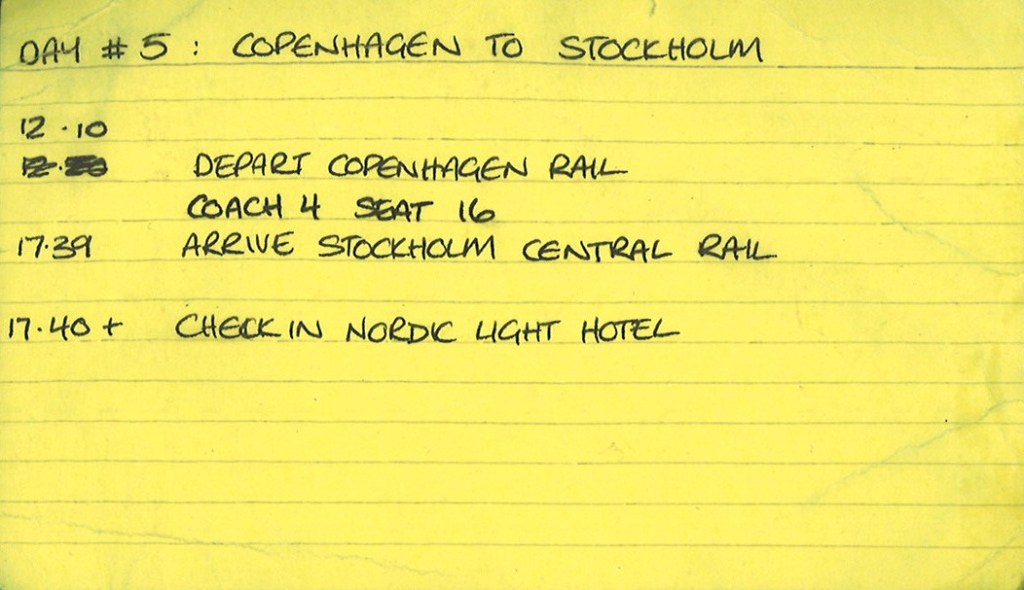 DAY # 5 : COPENHAGEN TO STOCKHOLM
12.10
DEPART COPENHAGEN RAIL
COACH 4 SEAT 16
17.39 ARRIVE STOCKHOLM CENTRAL RAIL
17.40 + CHECK IN NORDIC LIGHT HOTEL